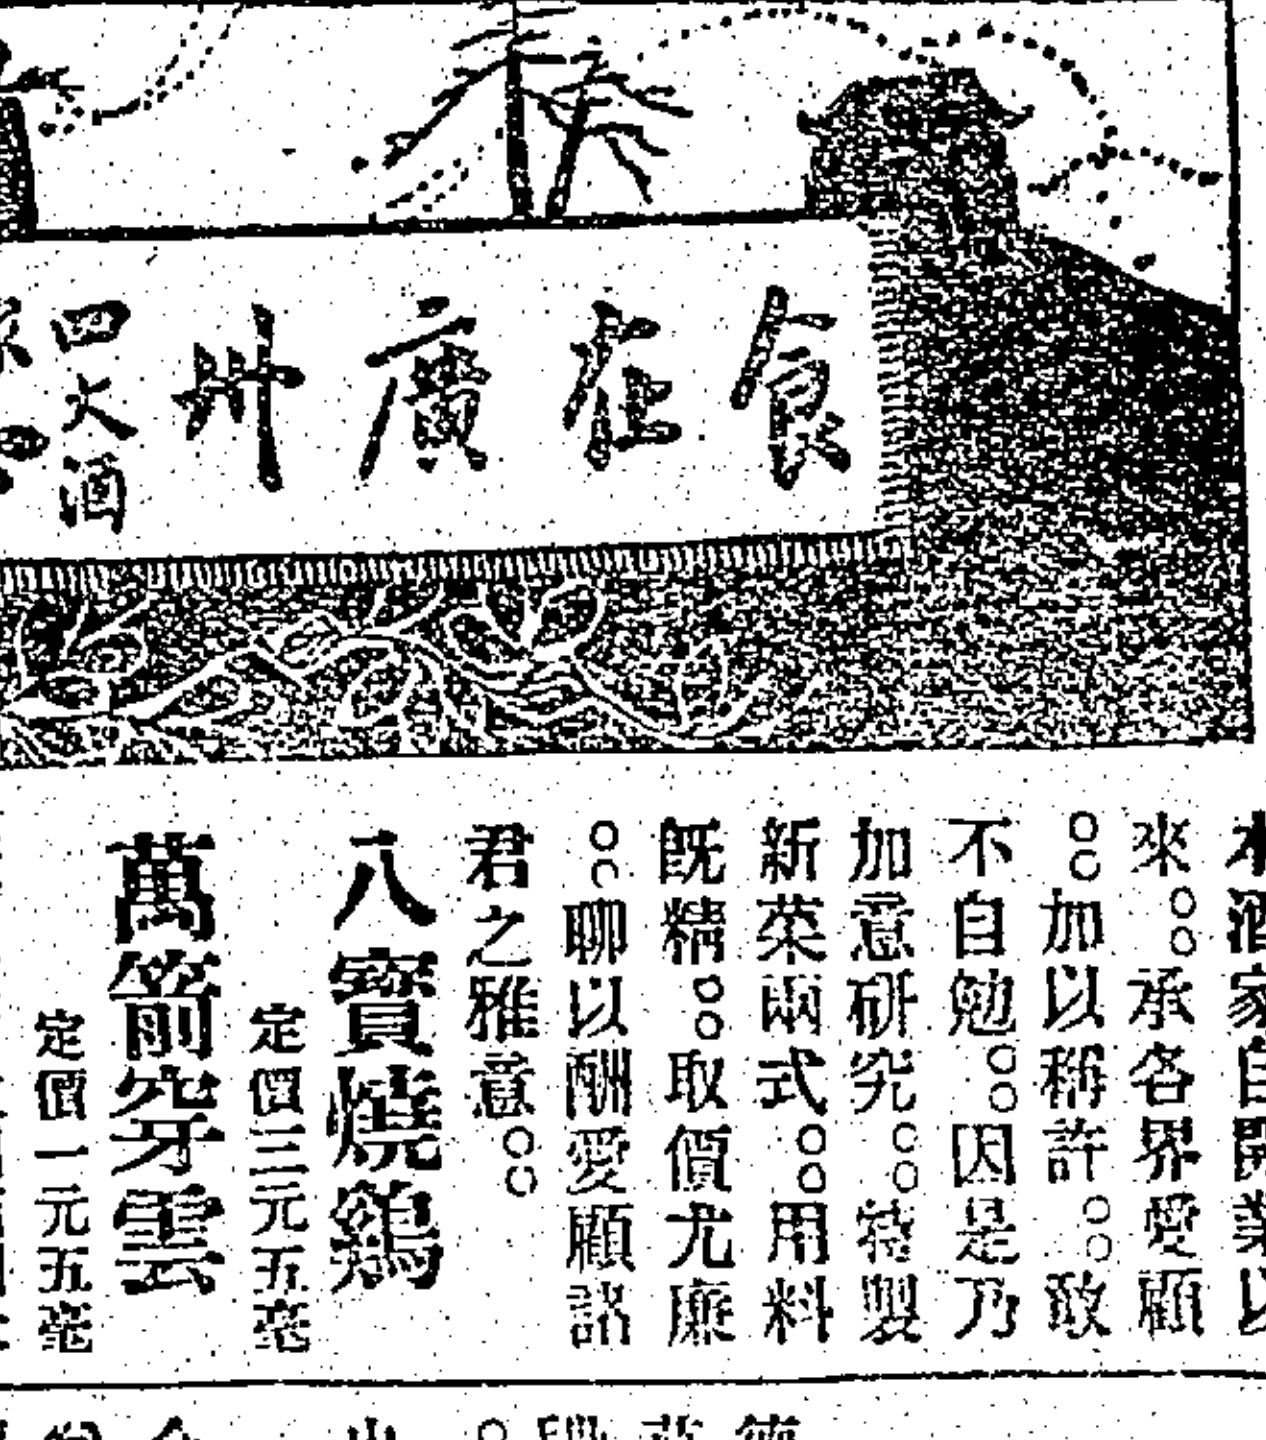 食在廣州
四大酒
本酒家自開業以
來。。承各界愛顧
。。加以稱許。。敢
不自勉。。因是乃
加意研究。。特製
新菜兩式。。用料
既精。。取價尤廉
。。聊以酬愛顧諸
君之雅意。。
八寶燒鷄
定價三元五毫
萬箭穿雲
定價一元五毫